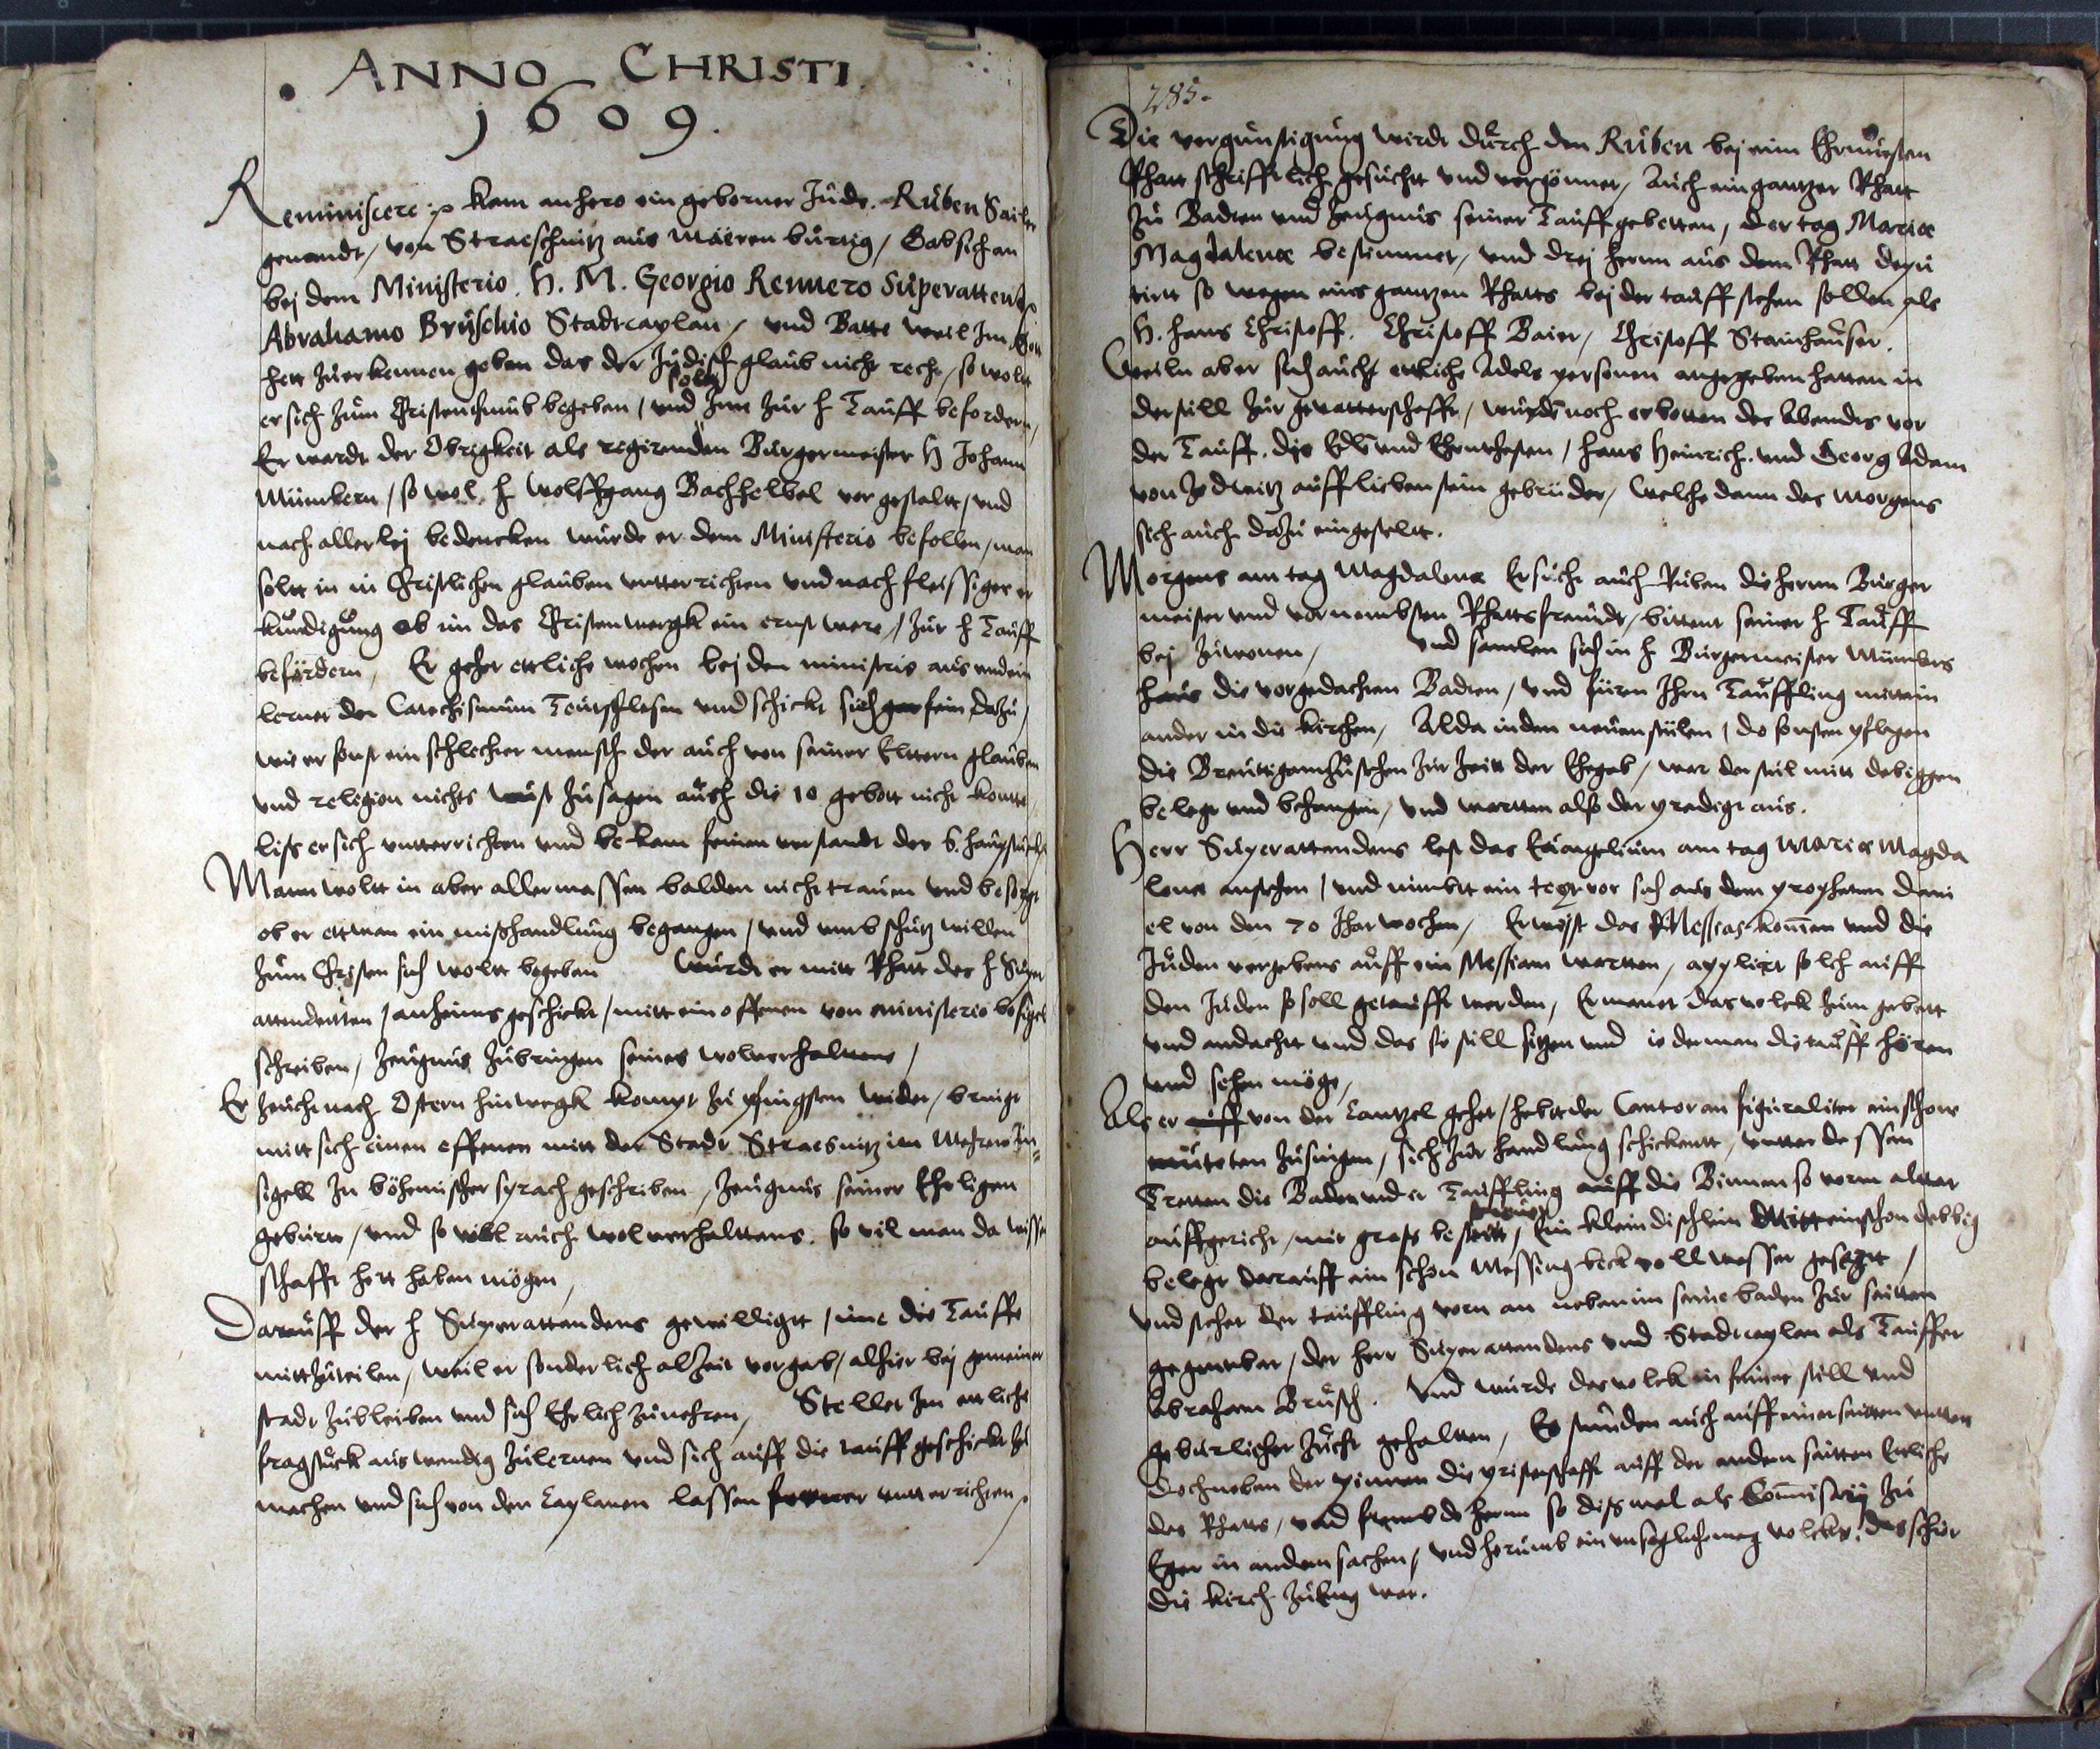 ANNO CHRISTI
1609.
Reminiscere kam anhero ein geborner Jude. Ruben Sailer
genandt, von Straeschnitz aus Mäeren bürtig, Gab sich an
bej dem Ministerio. H. M. Georgio Rennero Superattende
Abrahamo Brüschio Stadtcaplan, und Batte weil Im Gott
hett zuerkennen geben das der Jüdisch glaub nicht recht, so wolt
soltt
er sich zum Christenthumb begeben, und Inn zur h Tauff befordern,
Er wardt der Obrigkeit als regirenden Bürgermeister H Johann
Mümlern, so wol h Wolffgang Bachhelbel vor gestaltt, und
nach allerlej bedencken wurde er dem Ministerio befollen, man
soltt in in Christlichen glauben untterrichten und nach fleissiger er
kundigung ob im das Christen wergk ein ernst were, zur h Tauff
befördern, Er gehet ettliche wochen bej den ministris aus und ein
lernet den Catechismum Teutsch lesen und schickt sich gar fein dazu,
wie er sonst ein schlechter mensch der auch von seiner Elttern glauben
und religion nichts wust zusagen auch die 10 gebott nicht kontte,
liss er sich untterrichten und bekam feinen verstandt der 6. hauptstück
Mann woltt in aber allermassen balden nicht trauen und besorgt
ob er ettwan ein mißhandlung begangen, und umb schutz willen
zum Christen sich woltt begeben Wurde er mitt Rhatt des h Super
attendentten, anheims geschickt, mitt ein offenen von ministerio besigelt
schreiben, Zeugnus zubringen seines wolverhaltens,
Er zeucht nach Ostern hinwegk kompt zu pfingsten wider, bringt
mitt sich einen offenen mitt der Stadt Straesnitz im Mehren In-
sigell In böhmischer sprach geschriben, Zeugnus seiner Ehrligen
geburt, und so vill auch wolverhalttens. so vil man da wissen
schafft hett haben mögen,
Darauff der h Superattendens gewilligtt, ime die Tauffe
mittzuteilen, weil er sonderlich alzeit vorgab, alhier bej gemeiner
stadt zubleiben und sich Ehrlich zunehren, Stellet Im ettliche
fragstuck auswendig zulernen und sich auff die tauff geschickt zu
machen und sich von den Caplanen lassen ferner untterrichten,
285.
Die vergünstigung wirdt durch den Ruben bej eim Ehrnvesten
Rhatt schrifftlich gesucht und vergönnet, Auch ein gantzer Rhatt
zu Badten und Zeugnus seiner Tauff gebetten, der tag Mariæ
Magdalenæ bestimmet, und drej herrn aus dem Rhatt depu
tirtt so wegen eines gantzen Rhatts bej der tauff stehen sollen als
H. Hans Christoff. Christoff Baier, Christoff Stainhauser.
Weiln aber sich auch ettliche Adels personen angegeben hatten in
der still zur gevatterschafft, wurden noch erbetten des Abendts vor
der Tauff. die Edl und Ehrnthesten, Hans Heinrich. und Georg Adam
von Zedwitz auff liebenstein gebrüder, Welche dann des Morgens
sich auch dazu eingestellt.
Morgens am tag Magdalenæ Ersucht auch Ruben die herrn Bürger
meister und vornembsten Rhattsfreundt, bittent seiner h Tauff
bej zuwonen, und samlen sich in h Bürgermeister Mümlers
haus die vorgedachten Badten, und füren Ihrn Tauffling mittein
ander in die kirchen, Alda in den neuen stülen, do sonsten pflegen
die Breutigam zustehen zur zeitt der Ehegab, war der stul mitt debiggen
belegt und behangen, und wartten also der predigt aus.
Herr Superattendens lest das Euangelium am tag Mariæ Magda
lenæ anstehen, und nimbtt ein text vor sich aus dem propheten Dani
el von den 70 Jhar wochen, Erweist das Messias kommen und die
Juden vergebens auff ein Messiam wartten, applicirt solch auff
den Juden so soll getaufft werden, Ermanet das volck zum gebett
und andachtt und das sie still sitzen und iederman die tauff hören
und sehen möge,
Als er auff von der Cantzel gehet, hebtt der Cantor an figuraliter ein schone
muteten zusingen, sich zur handlung schickentt, untter dessen
Tretten die Baden und er Tauffling auff die Binnen so vorm alttar
auffgericht, mit grass bestreutt, Ein klein dischlein Mitt ein schon debbig
belegt darauff ein schon Messing beck voll wasser gesetzt,
Und stehet der tauffling vorn an neben im seine baden zur seitten
gegenuber, der herr Superattendens und Stadtcaplan als Tauffer
Abraham Brusch. Und wurde das volck in feiner still und
gebürlicher zucht gehaltten, Es stunden auch auff einer seitten untten
doch neben der pinnen die pristerschafft auff der andern seitten Ettliche
des Rhatts, und frembde herrn so diss mal als Commissarij zu
Eger in andern sachen, und herumb ein unseglich meng volcks, das schir
die kirch zu eng war.